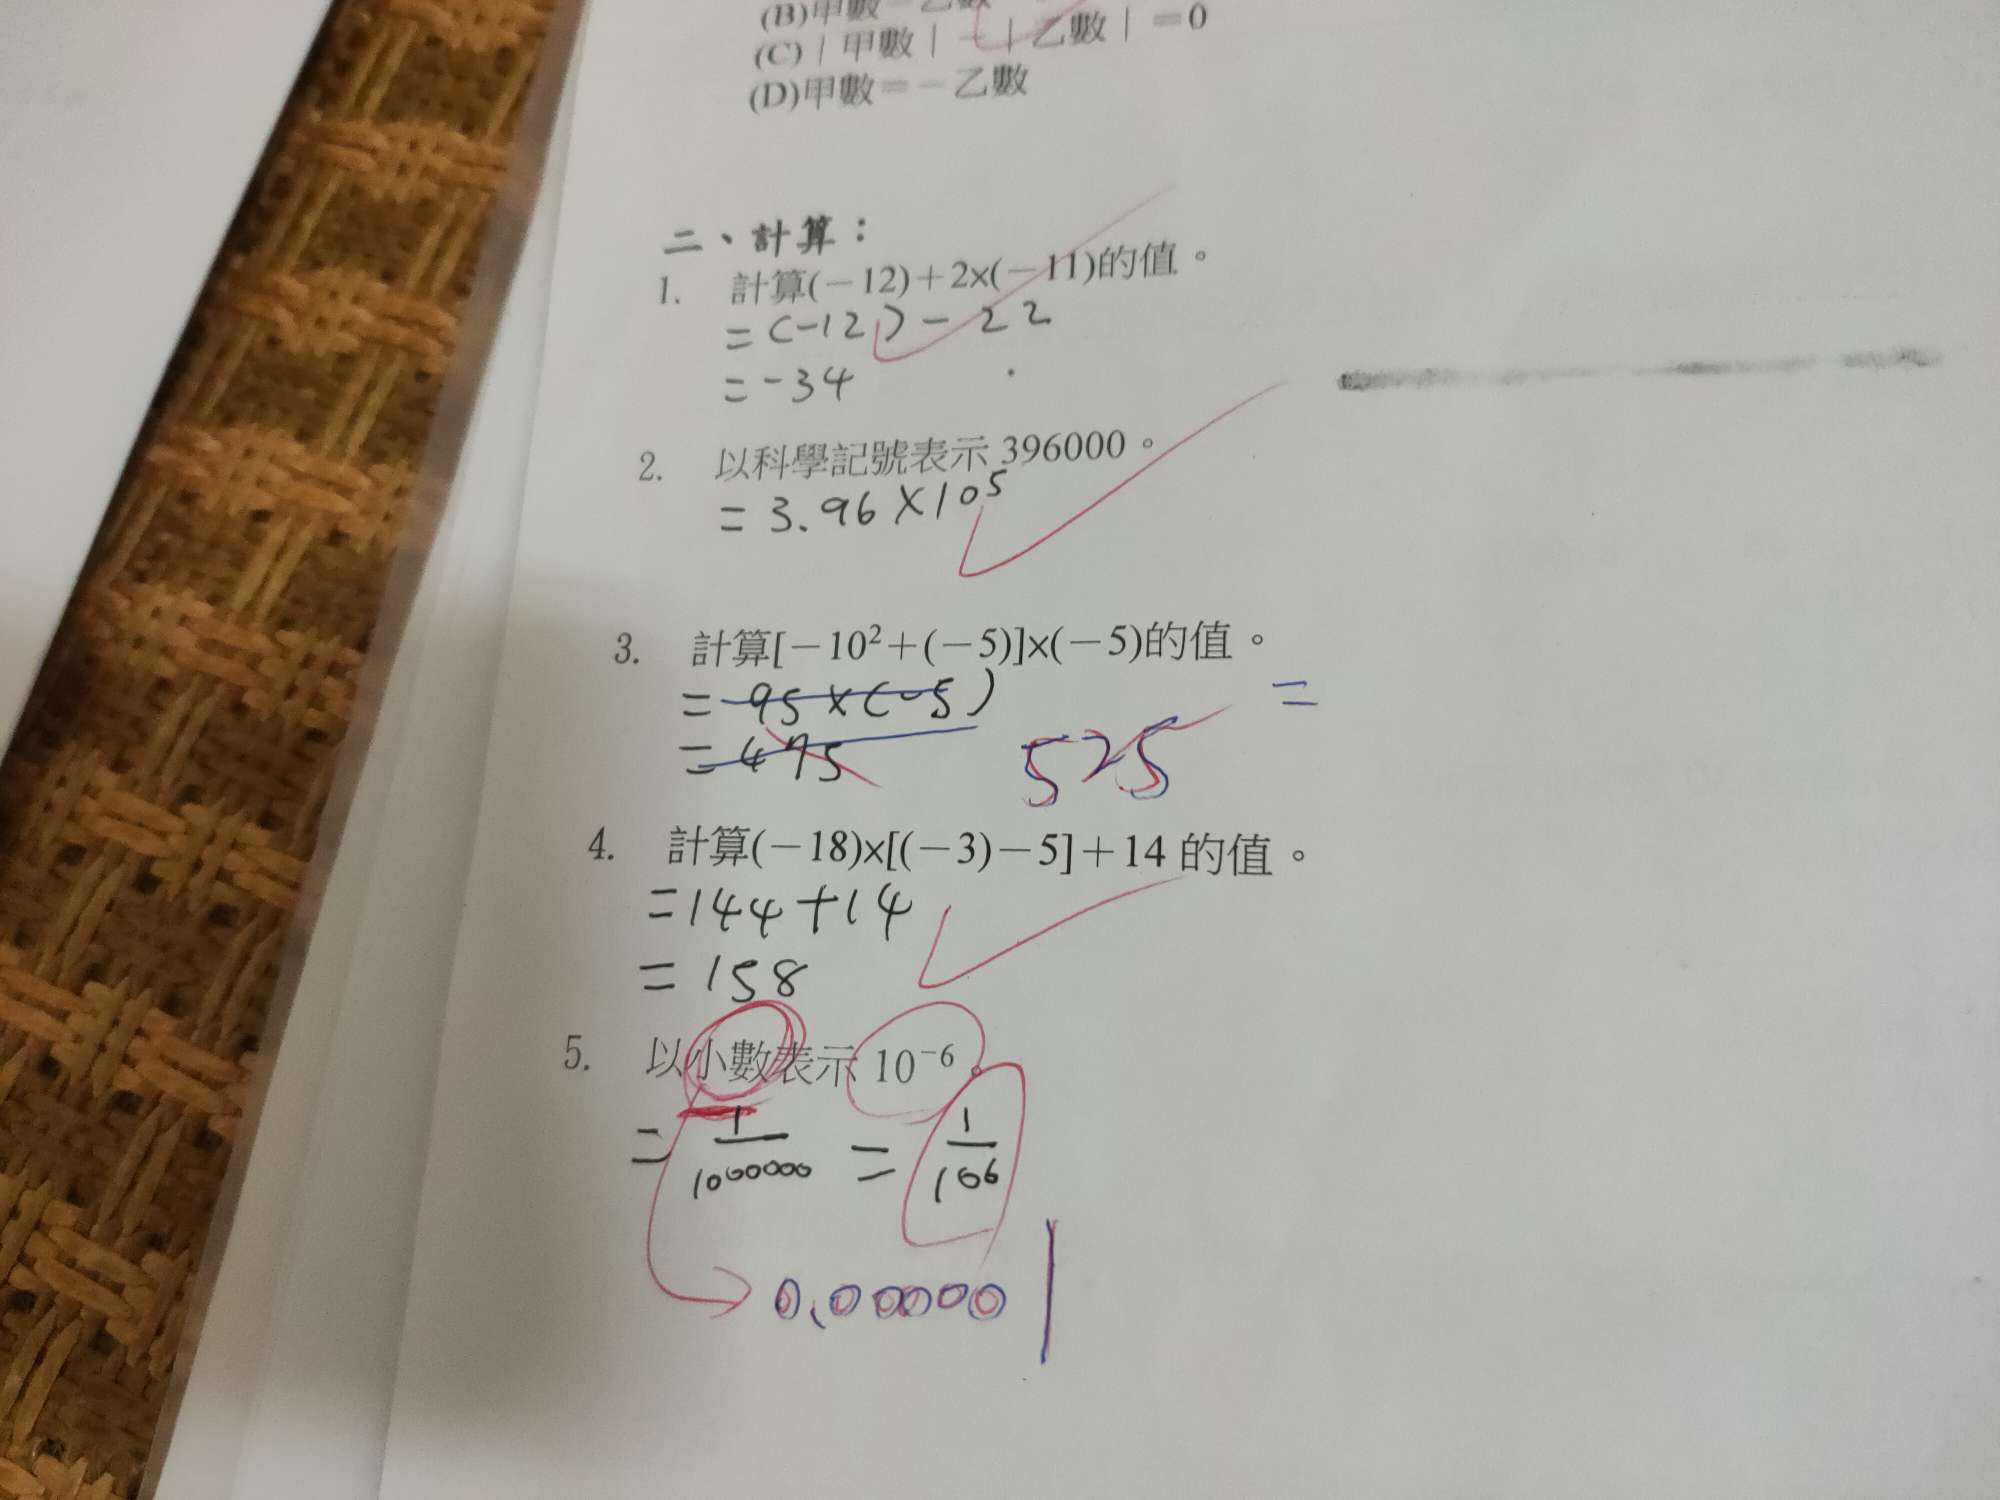 (B)甲數=乙數
(C)|甲數|-|乙數|=0
(D)甲數=-乙數
二、計算:
1. 計算(-12)+2×(-11)的值。
=(-12)-22
=-34
2. 以科學記號表示 396000。
=3.96×10⁵
3. 計算[-10²+(-5)]×(-5)的值。
=-95×(-5) =
=475 525
4. 計算(-18)×[(-3)-5]+14 的值。
=144+14
=158
5. 以小數表示 10⁻⁶。
=1/1000000=1/10⁶
0.000001